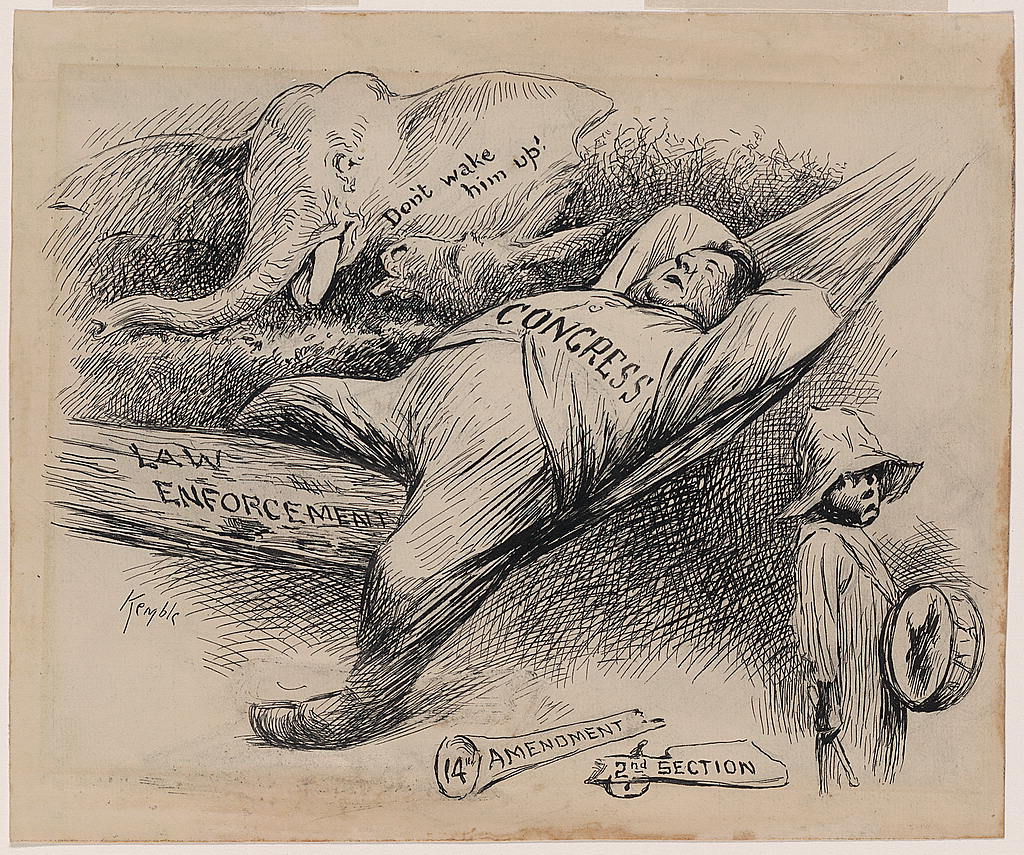 Don't wake
him up!
CONGRESS
LAW
ENFORCEMENT
Kemble
14th AMENDMENT
2nd SECTION